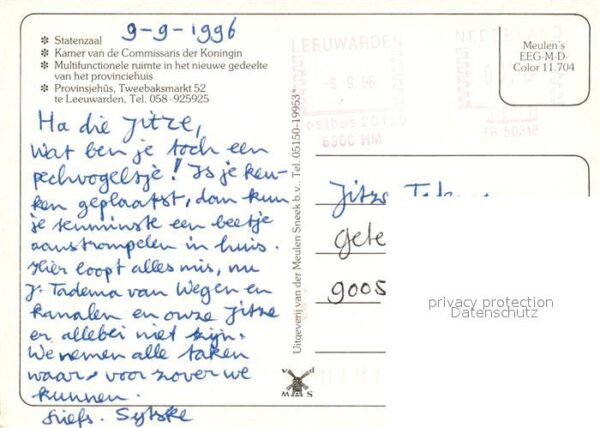 9-9-1996
* Statenzaal
* Kamer van de Commissaris der Koningin
* Multifunctionele ruimte in het nieuwe gedeelte
van het provinciehuis
* Provinsjehûs, Tweebaksmarkt 52
te Leeuwarden, Tel. 058-925925
Ha die Jitze,
wat ben je toch een
pechvogeltje! Is je keu-
ken geplaatst, dan kun
je tenminste een beetje
aanstrompelen in huis.
Hier loopt alles mis, nu
J. Tadema van Wegen en
kanalen en onze Jitze
er allebei niet zijn.
We nemen alle taken
waar voor zover we
kunnen.
Liefs. Sytske
Uitgeverij van der Meulen Sneek b.v.. Tel. 05150-19953*
v d
M S
LEEUWARDEN
-9. 9. 96
Postbus 20120
8900 HM
NEDERLAND
Meulen's
EEG-M-D-
Color 11.704
Jitze Tadema
9005
privacy protection
Datenschutz